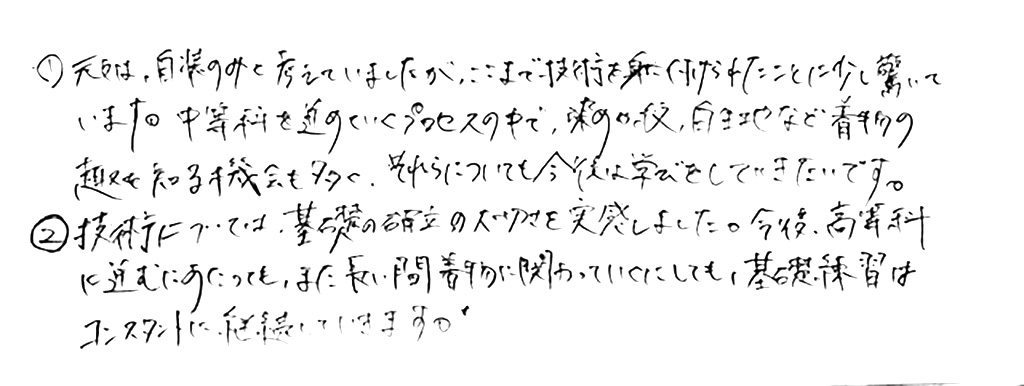 ① 元々は、自装のみと考えていましたが、ここまで技術を身に付けられたことに少し驚いて
います。中等科を進めていくプロセスの中で、染めや紋、白生地など着物の
趣を知る機会も多く、それらについても今後は学びをしていきたいです。
② 技術については、基礎の確立の大切さを実感しました。今後、高等科
に進むにあたっても、また長い間着物に関わっていくにしても、基礎練習は
コンスタントに継続していきます。